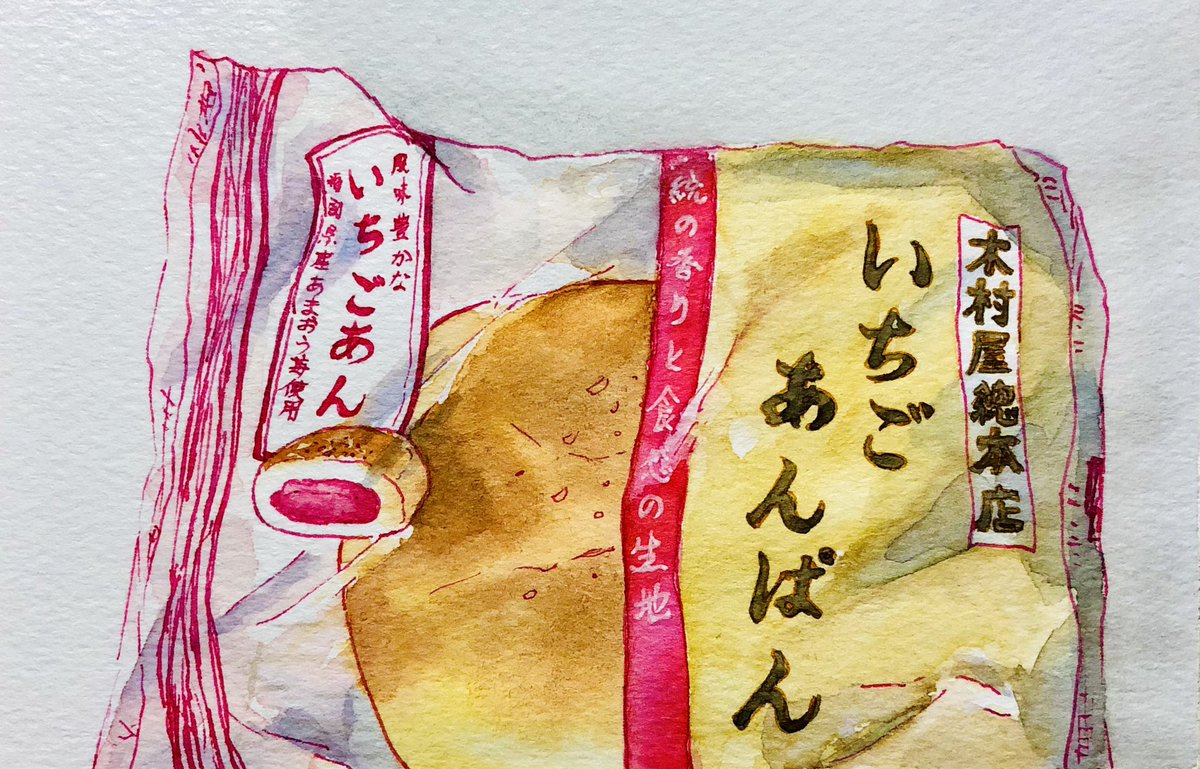 木村屋總本店
いちご
あんぱん
統の香りと食感の生地
風味豊かな
いちごあん
福岡県産あまおう苺使用